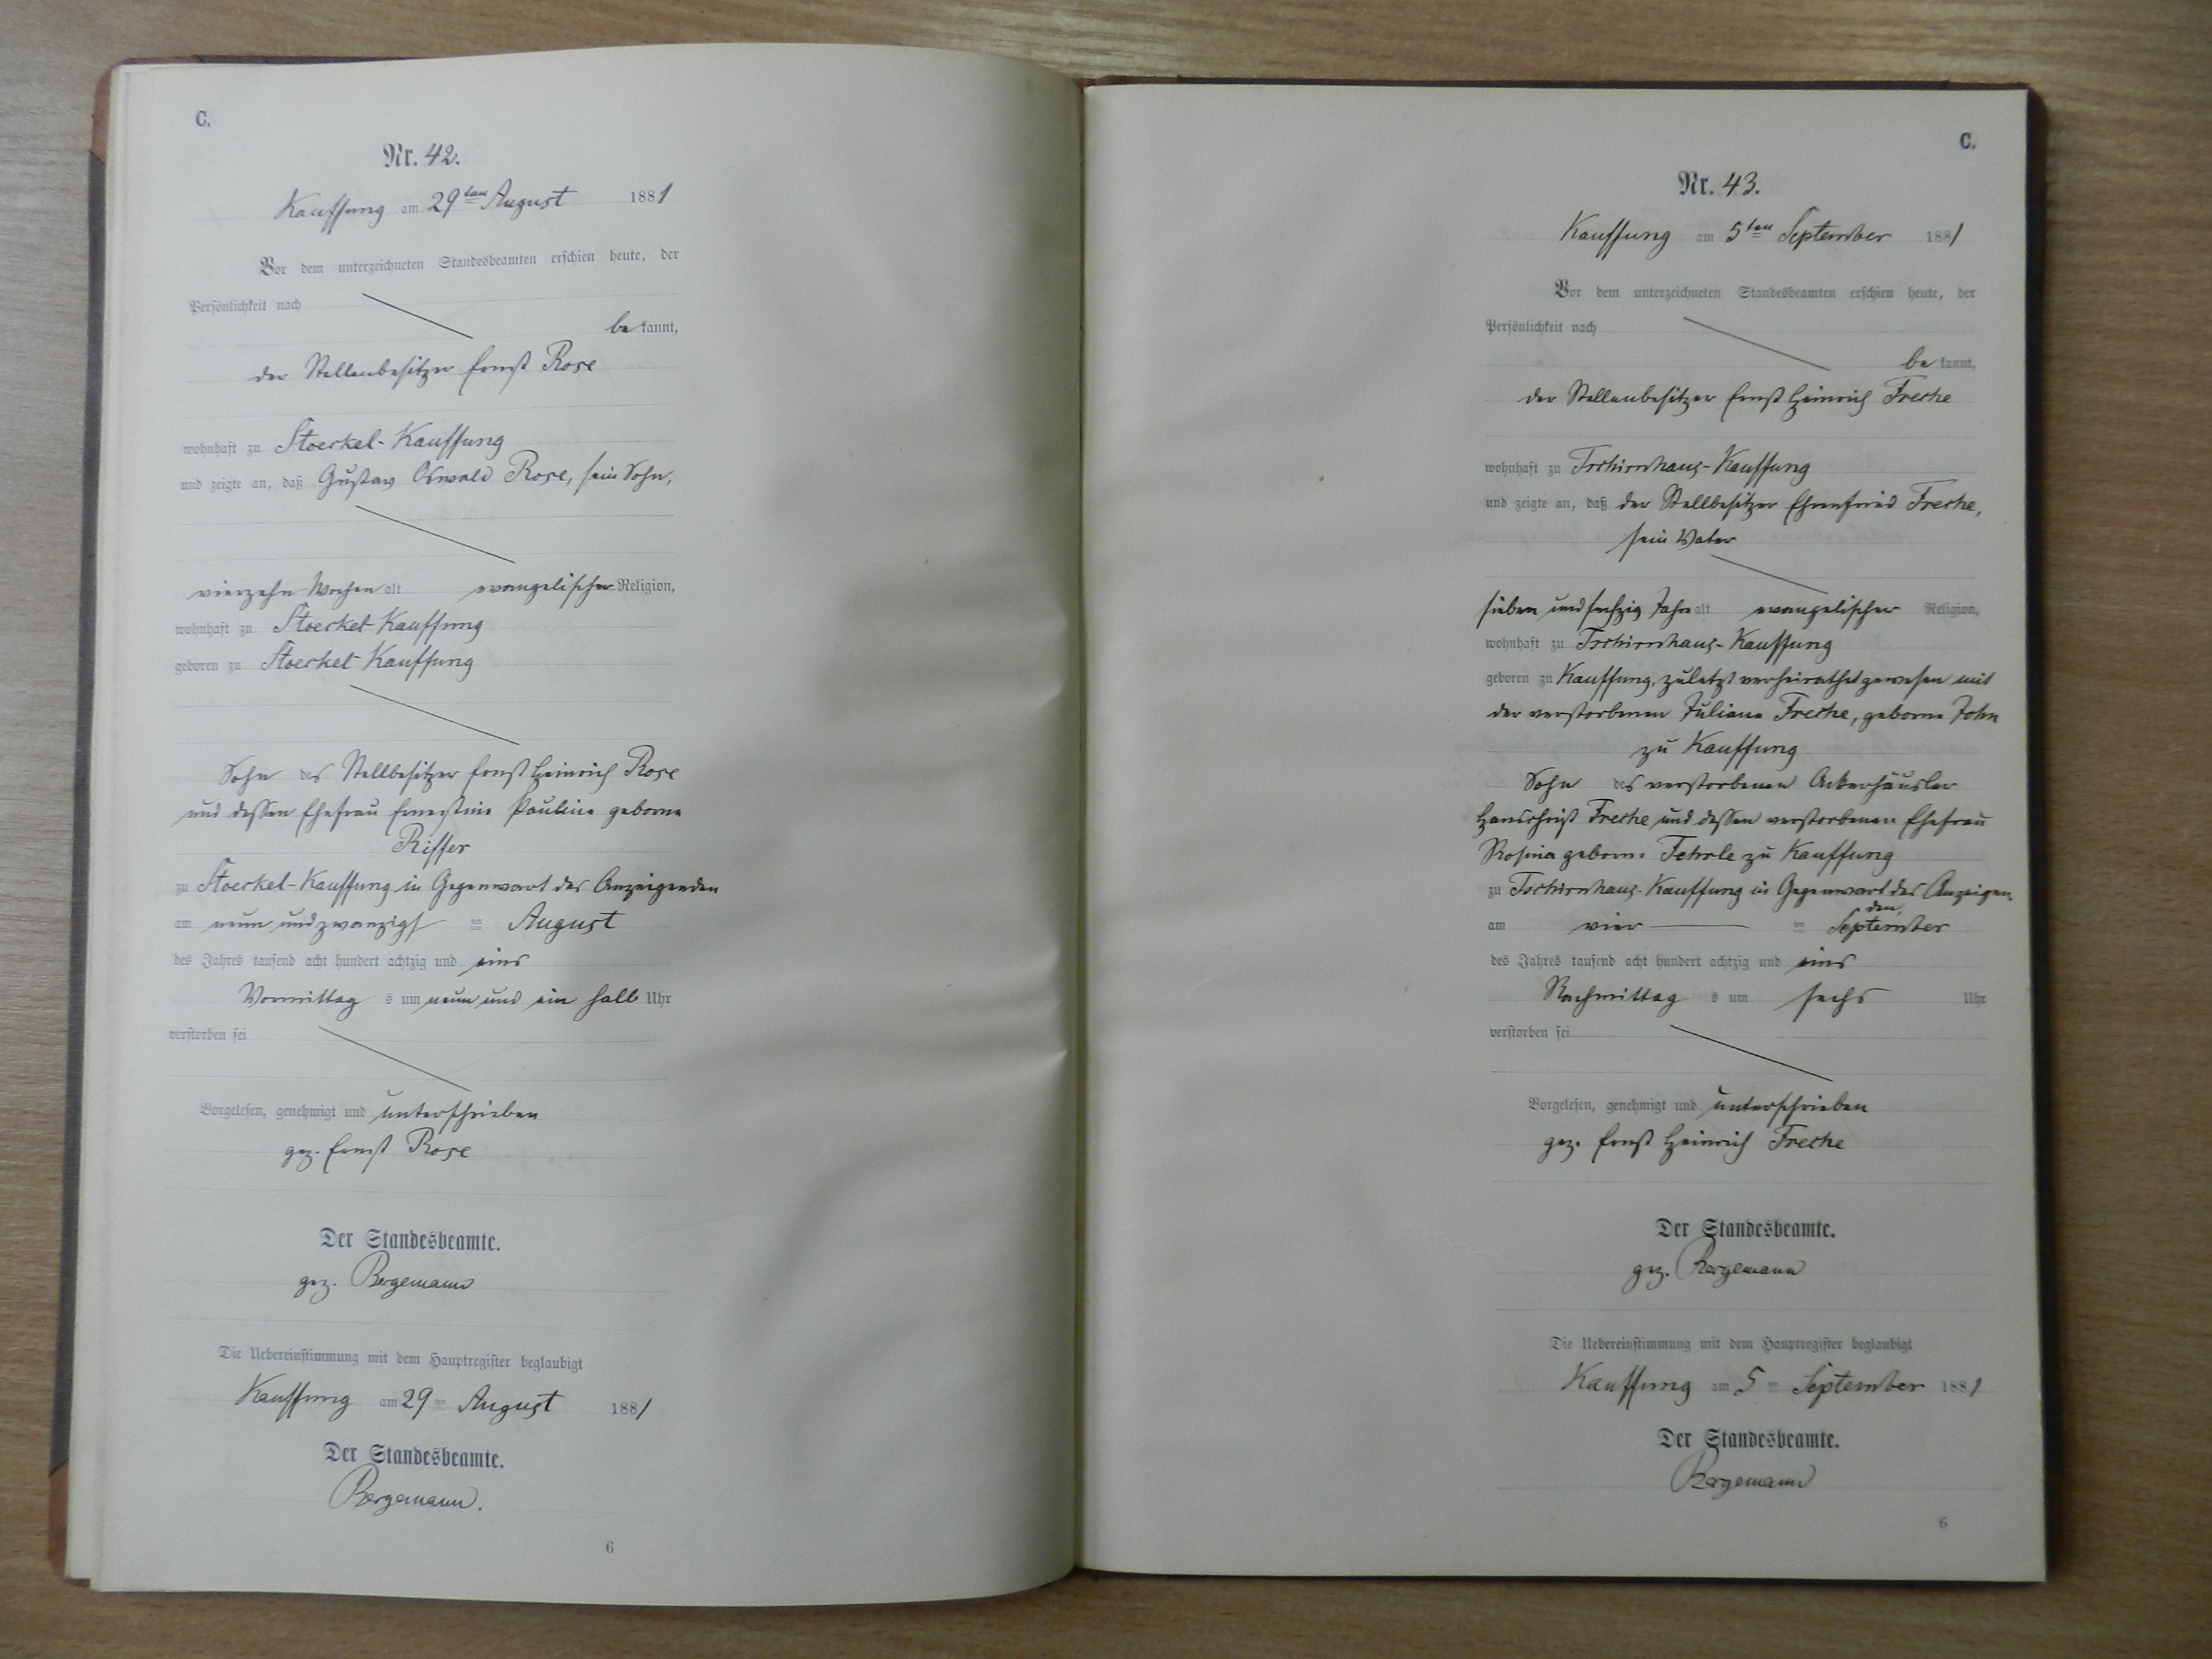 C.
Nr. 42.
Kauffung am 29ten August 1881
Vor dem unterzeichneten Standesbeamten erschien heute, der
Persönlichkeit nach
bekannt,
der Stellenbesitzer Ernst Rose
wohnhaft zu Stoeckel-Kauffung
und zeigte an, daß Gustav Oswald Rose, sein Sohn,
vierzehn Wochen alt evangelischer Religion,
wohnhaft zu Stoeckel Kauffung
geboren zu Stoeckel Kauffung
Sohn des Stellbesitzer Ernst Heinrich Rose
und dessen Ehefrau Ernestine Pauline geborne
Riffer
zu Stoeckel-Kauffung in Gegenwart des Anzeigenden
am neun und zwanzigsten August
des Jahres tausend acht hundert achtzig und eins
Vormittags um neun und ein halb Uhr
verstorben sei
Vorgelesen, genehmigt und unterschrieben
gez. Ernst Rose
Der Standesbeamte.
gez. Bergemann
Die Uebereinstimmung mit dem Hauptregister beglaubigt
Kauffung am 29ten August 1881
Der Standesbeamte.
Bergemann.
6
C.
Nr. 43.
Kauffung am 5ten September 1881
Vor dem unterzeichneten Standesbeamten erschien heute, der
Persönlichkeit nach
bekannt,
der Stellenbesitzer Ernst Heinrich Freche
wohnhaft zu Tschirnhaus-Kauffung
und zeigte an, daß der Stellbesitzer Ehrenfried Freche,
sein Vater
sieben und sechzig Jahre alt evangelischer Religion,
wohnhaft zu Tschirnhaus-Kauffung
geboren zu Kauffung, zuletzt verheirathet gewesen mit
der verstorbenen Juliane Freche, geborne John
zu Kauffung
Sohn des verstorbenen Ackerhäusler
Hanschrist Freche und dessen verstorbenen Ehefrau
Rosina geborne zu Kauffung
zu Tschirnhaus-Kauffung in Gegenwart des Anzeigen-
den,
am vierten September
des Jahres tausend acht hundert achtzig und eins
Nachmittags um sechs Uhr
verstorben sei
Vorgelesen, genehmigt und unterschrieben
gez. Ernst Heinrich Freche
Der Standesbeamte.
gez. Bergemann
Die Uebereinstimmung mit dem Hauptregister beglaubigt
Kauffung am 5ten September 1881
Der Standesbeamte.
Bergemann
6